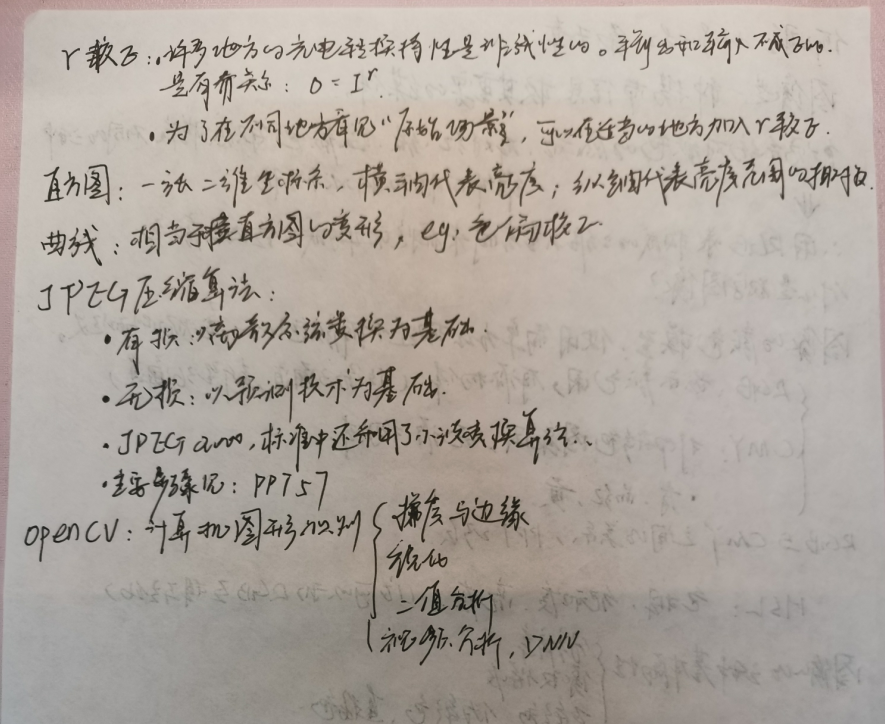 γ数子:·许多地方的光电转换特性是非线性的。输出和输入不成正比.
是有幂关系: O = I^γ.
·为了在不同地方看见“原始场景”,可以在适当的地方加入γ数子.
直方图:一张二维坐标系,横轴代表亮度;纵轴代表亮度范围的相对值.
曲线:相当于直方图的变形,eg.色阶校正
JPEG压缩算法:
·有损:以离散余弦变换为基础.
·无损:以预测技术为基础.
·JPEG2000,标准中还采用了小波变换算法..
·主要步骤见:PPT57
openCV:计算机图形识别 { 梯度与边缘
二值分析
视频分析,DNN